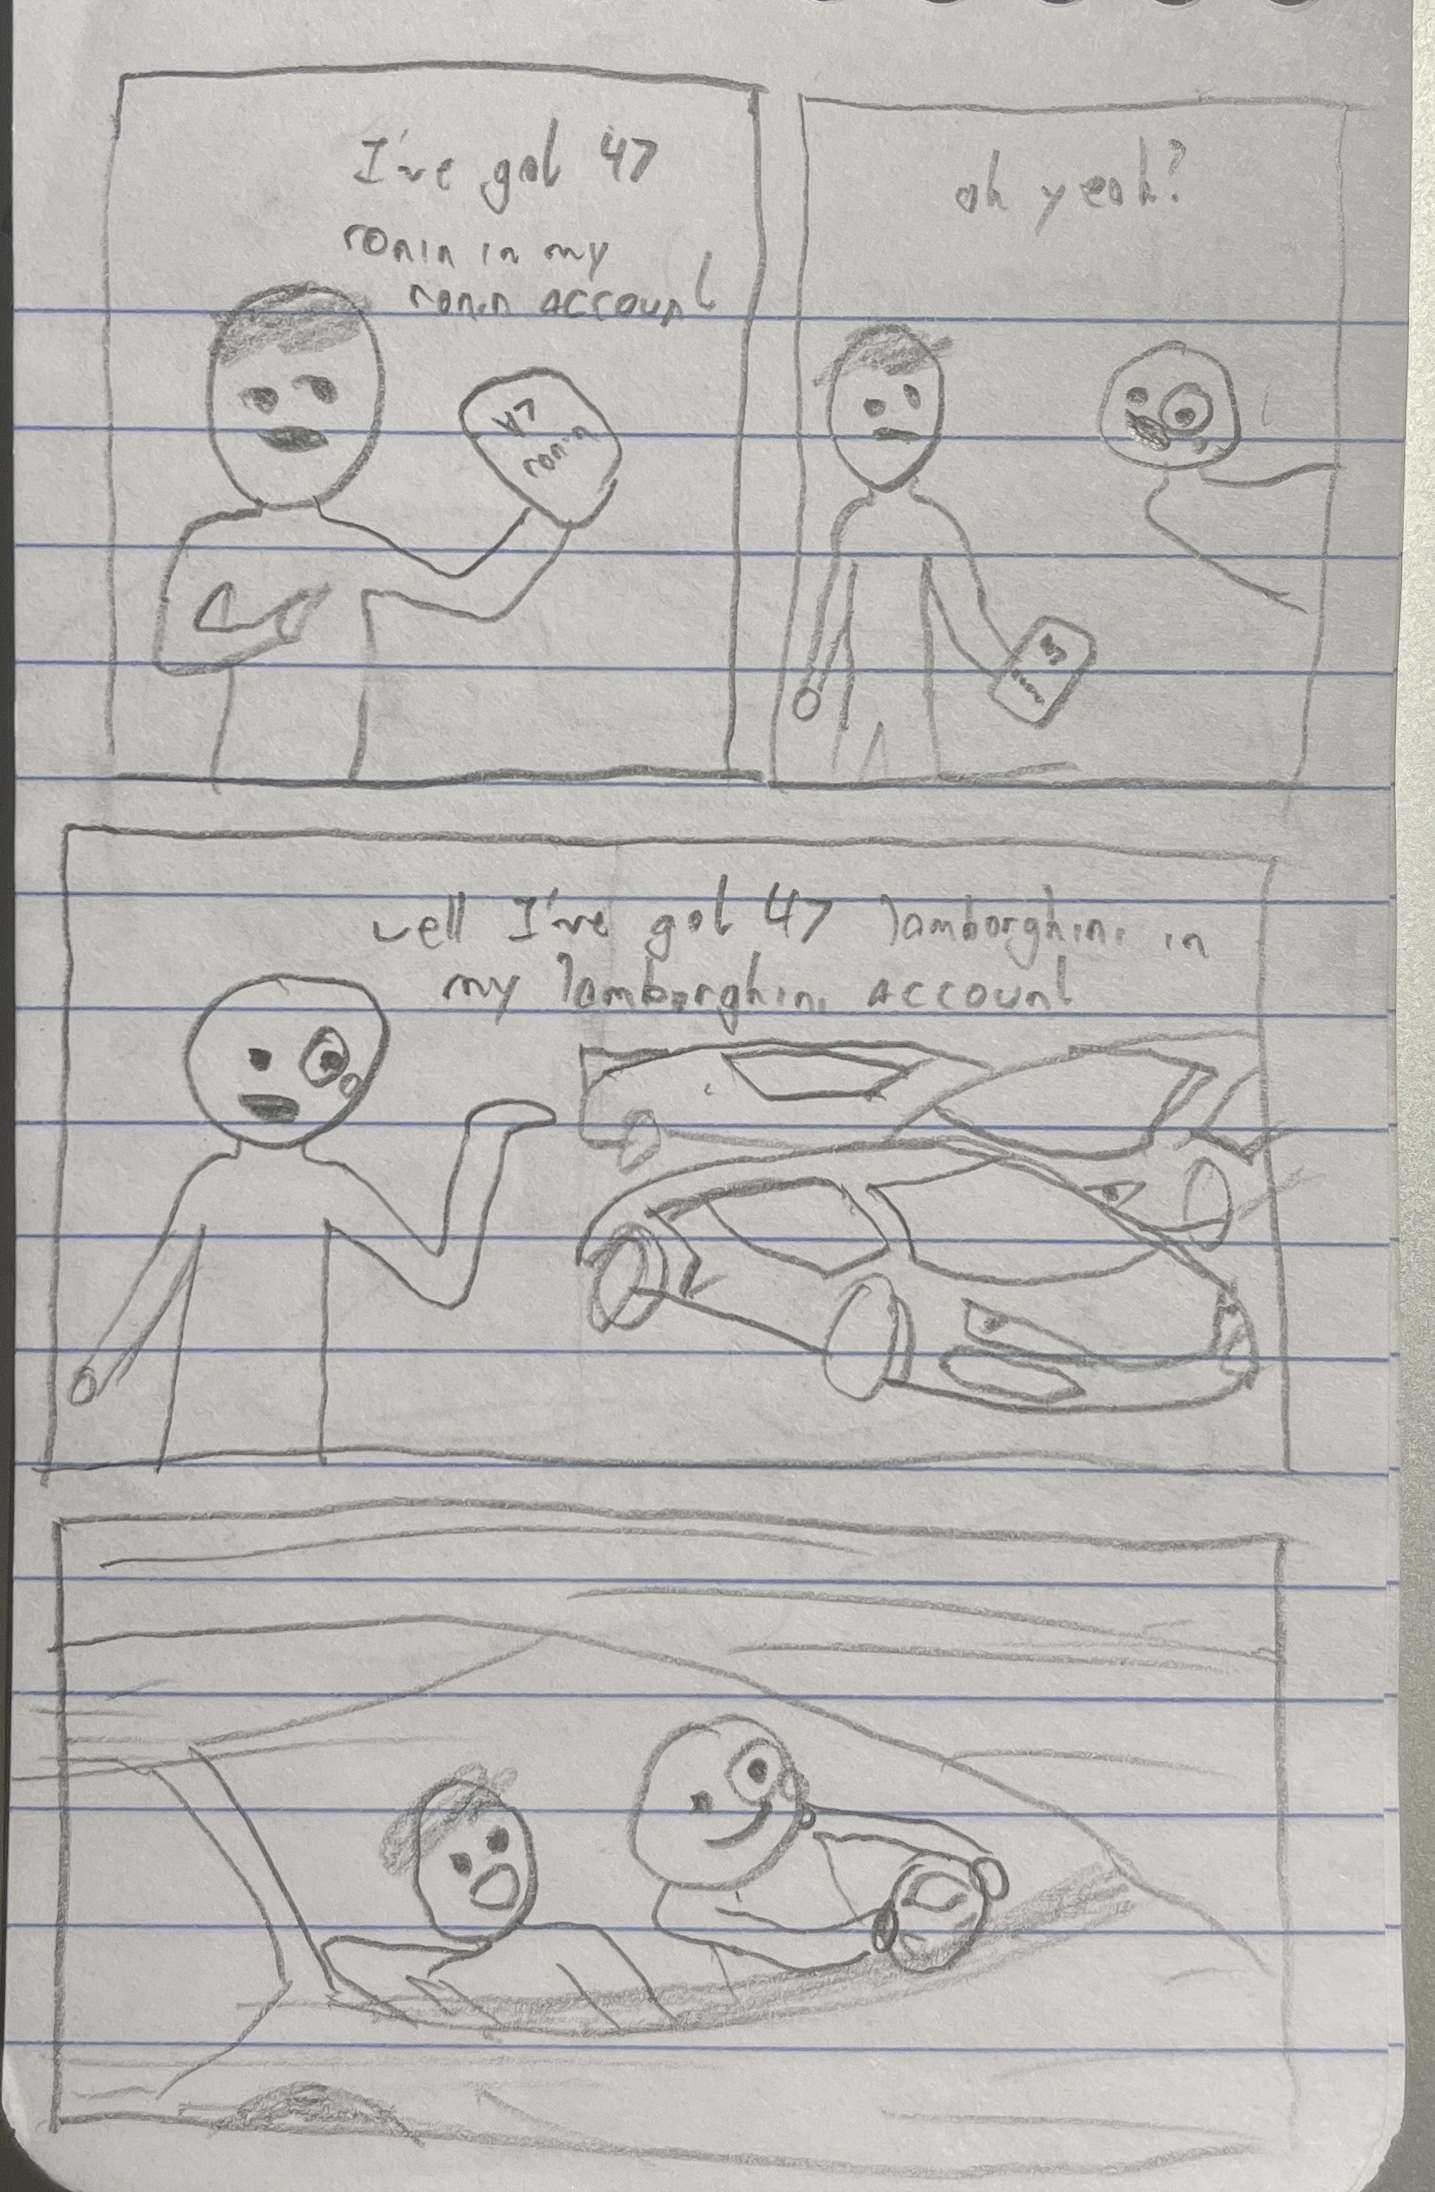 I've got 47
ronin in my
ronin account
47
ronin
oh yeah?
well I've got 47 lamborghini in
my lamborghini account